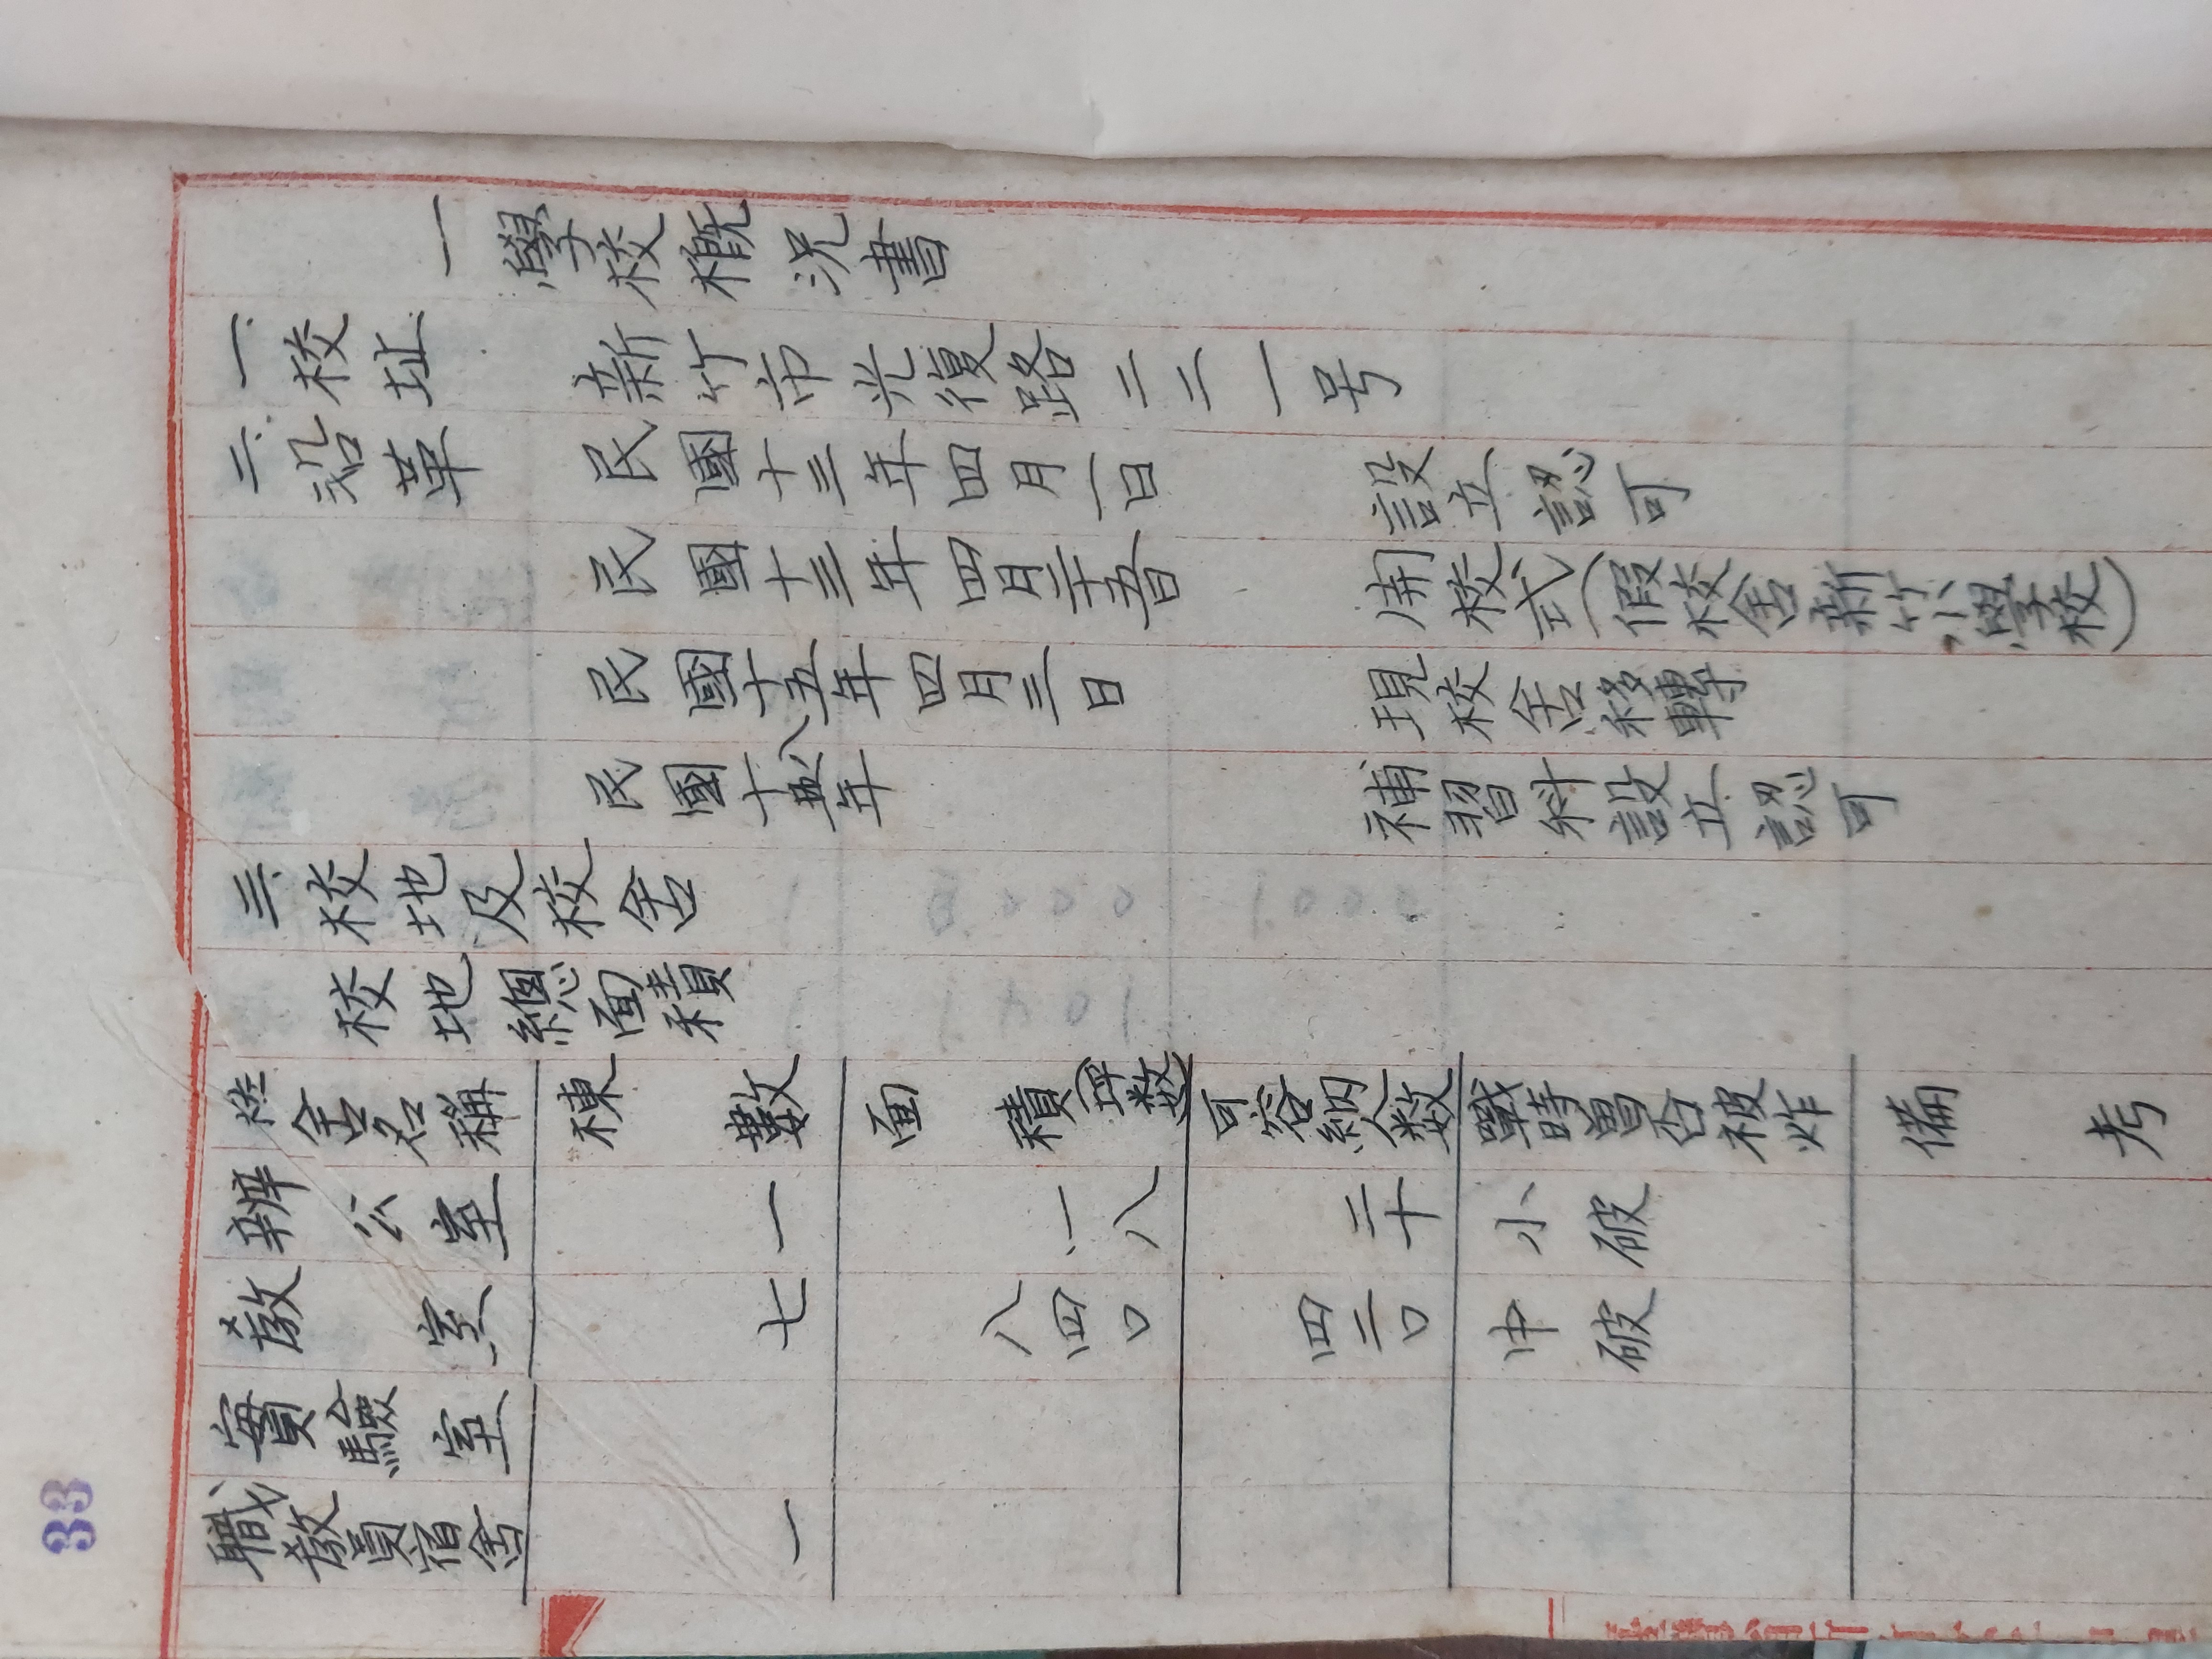 一學校概況書
一、校址 新竹市光復路二二一号
二、沿革 民國十三年四月一日 設立認可
民國十三年四月二十五日 開校式(假校舍新竹小學校)
民國十五年四月三日 現校舍移轉
民國十八年 補習科設立認可
三、校地及校舍
校地總面積
校舍名稱 棟數 面積(坪數) 可容納人數 戰時曾否被炸 備考
辦公室 一 一八 二十 小破
教室 七 八四〇 四二〇 中破
實驗室
職教員宿舍 一
33